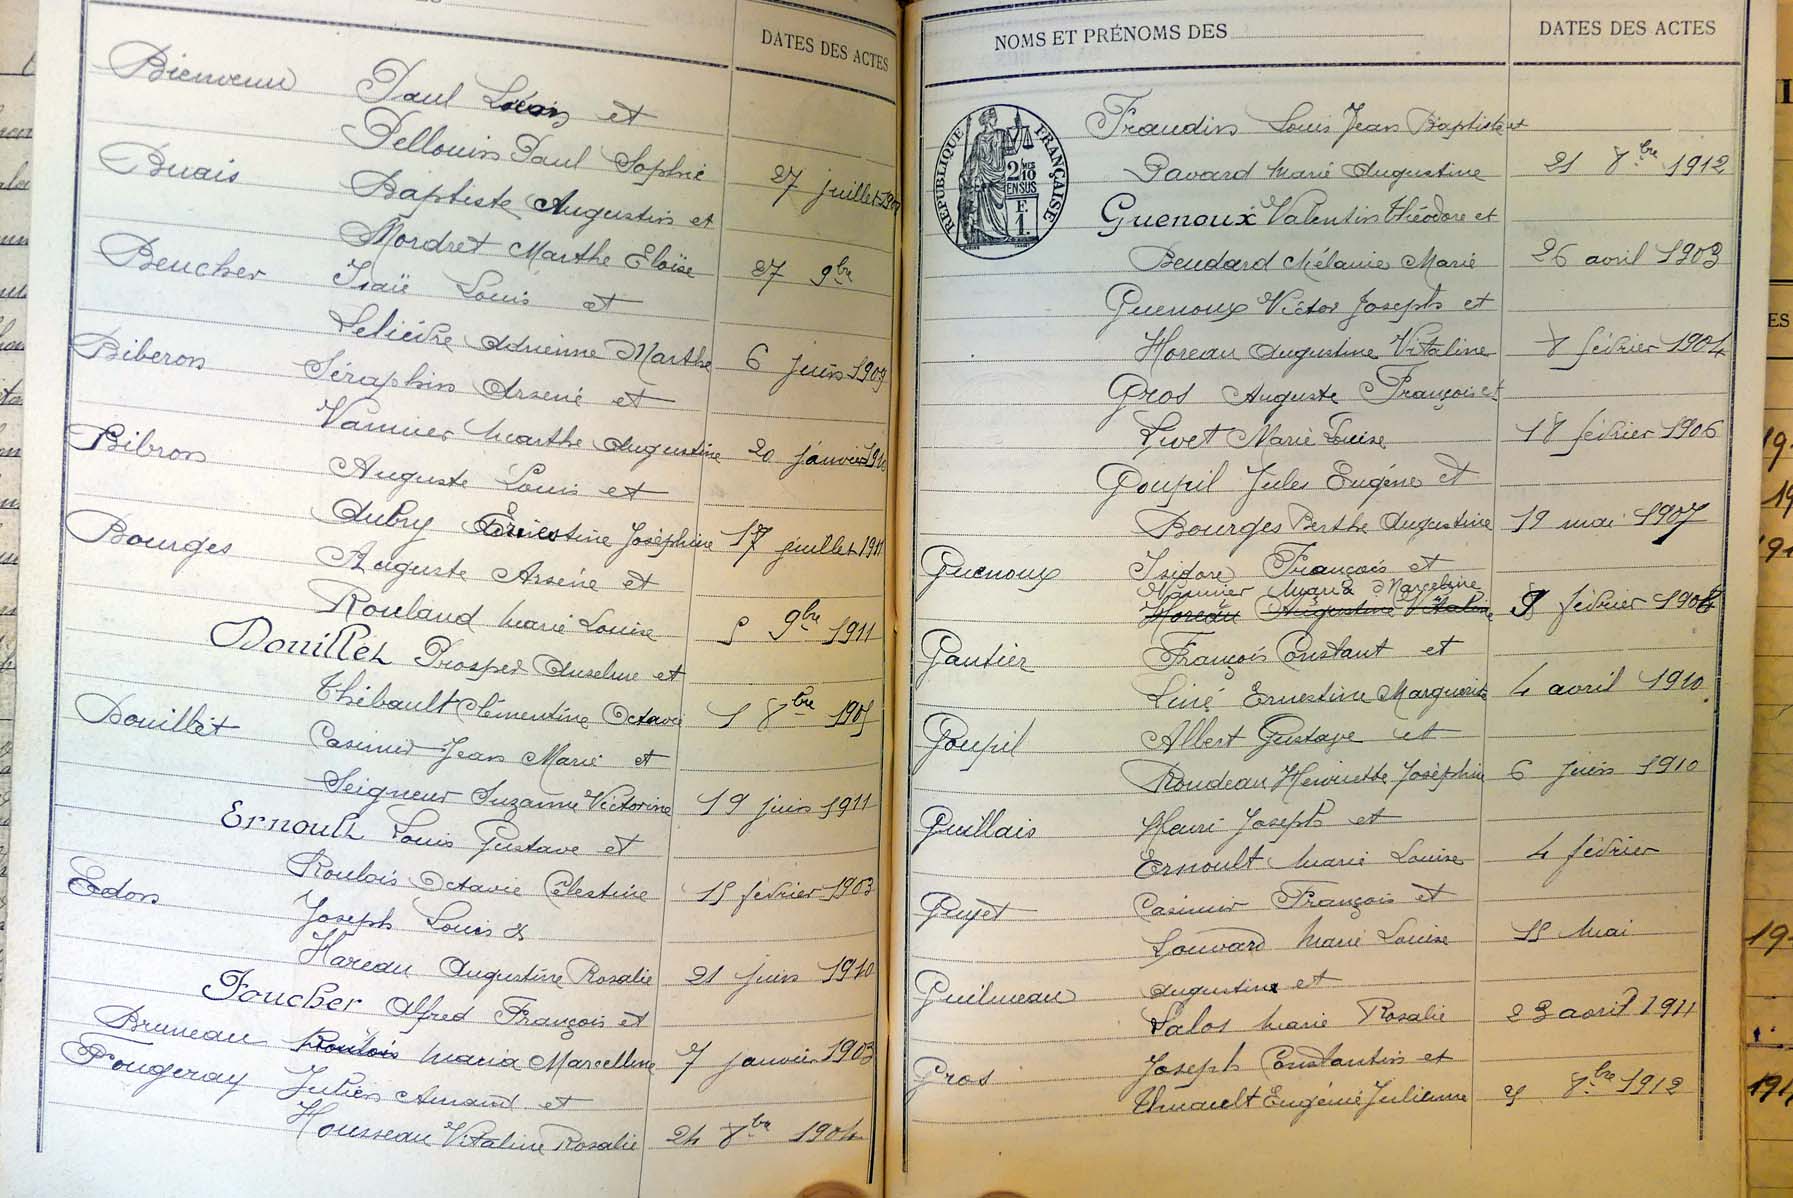 DATES DES ACTES
Bienvenu Paul Louis et
Pellouin Paul Sophie 27 juillet
Buais Baptiste Augustin et
Mordret Marthe Eloïse 27 9bre
Beucher Isaïe Louis et
Lelièvre Adrienne Marthe 6 juin 1909
Biberon Séraphin Arsené et
Vannier Marthe Augustine 20 janvier 1910
Bibron Auguste Louis et
Aubry Ernestine Joséphine 17 juillet 1911
Bourges Auguste Arsène et
Rouland Marie Louise 9bre 1911
Douillet Prosper Anselme et
Thébault Clémentine Octavie 1 8bre 1905
Douillet Casimir Jean Marie et
Seigneur Suzanne Victorine 19 juin 1911
Ernoult Louis Gustave et
Roulois Octavie Célestine 15 février 1903
Edon Joseph Louis &
Hareau Augustine Rosalie 21 juin 1910
Foucher Alfred François et
Bruneau Roulois Maria Marcelline 7 janvier 1903
Fougeray Julien Amand et
Housseau Vitaline Rosalie 24 8bre 1904
NOMS ET PRÉNOMS DES DATES DES ACTES
RÉPUBLIQUE FRANÇAISE
2 MES
2/10
EN SUS
F.
1.
Fraudin Louis Jean Baptiste et
Pavard Marie Augustine 21 8bre 1912
Guenoux Valentin Théodore et
Beudard Mélanie Marie 26 avril 1903
Guenoux Victor Joseph et
Horeau Augustine Vitaline 8 février 1904
Gros Auguste François et
Livet Marie Louise 18 février 1906
Goupil Jules Eugène et
Bourges Berthe Augustine 19 mai 1907
Guenoux Isidore François et
Vannier Maria Marceline
Horeau Augustine Vitaline 9 février 1908
Gautier François Constant et
Liné Ernestine Marguerite 4 avril 1910
Goupil Albert Gustave et
Rondeau Henriette Joséphine 6 juin 1910
Guillais Henri Joseph et
Ernoult Marie Louise 4 février
Guyet Casimir François et
Louvard Marie Louise 15 Mai
Guilmeau Augustine et
Salos Marie Rosalie 23 avril 1911
Gros Joseph Constantin et
Thuault Eugénie Julienne 21 8bre 1912